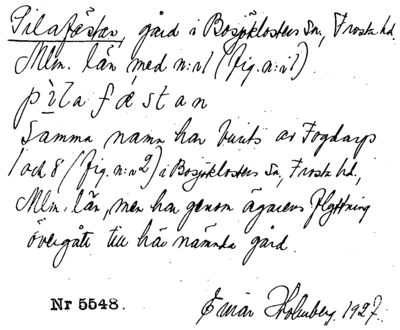 Pilafästan, gård i Bosjöklosters Sn, Frosta hd.
Mlm. län med n:r 1 (fig. n:r 1)
pìlafæstan
Samma namn har burits av Fogdarp
1 och 8 (fig. n:r 2) i Bosjöklosters Sn, Frosta hd,
Mlm. län, men har genom ägarens flyttning
övergått till här nämnda gård.
Nr 5548.
Einar Holmberg. 1927.